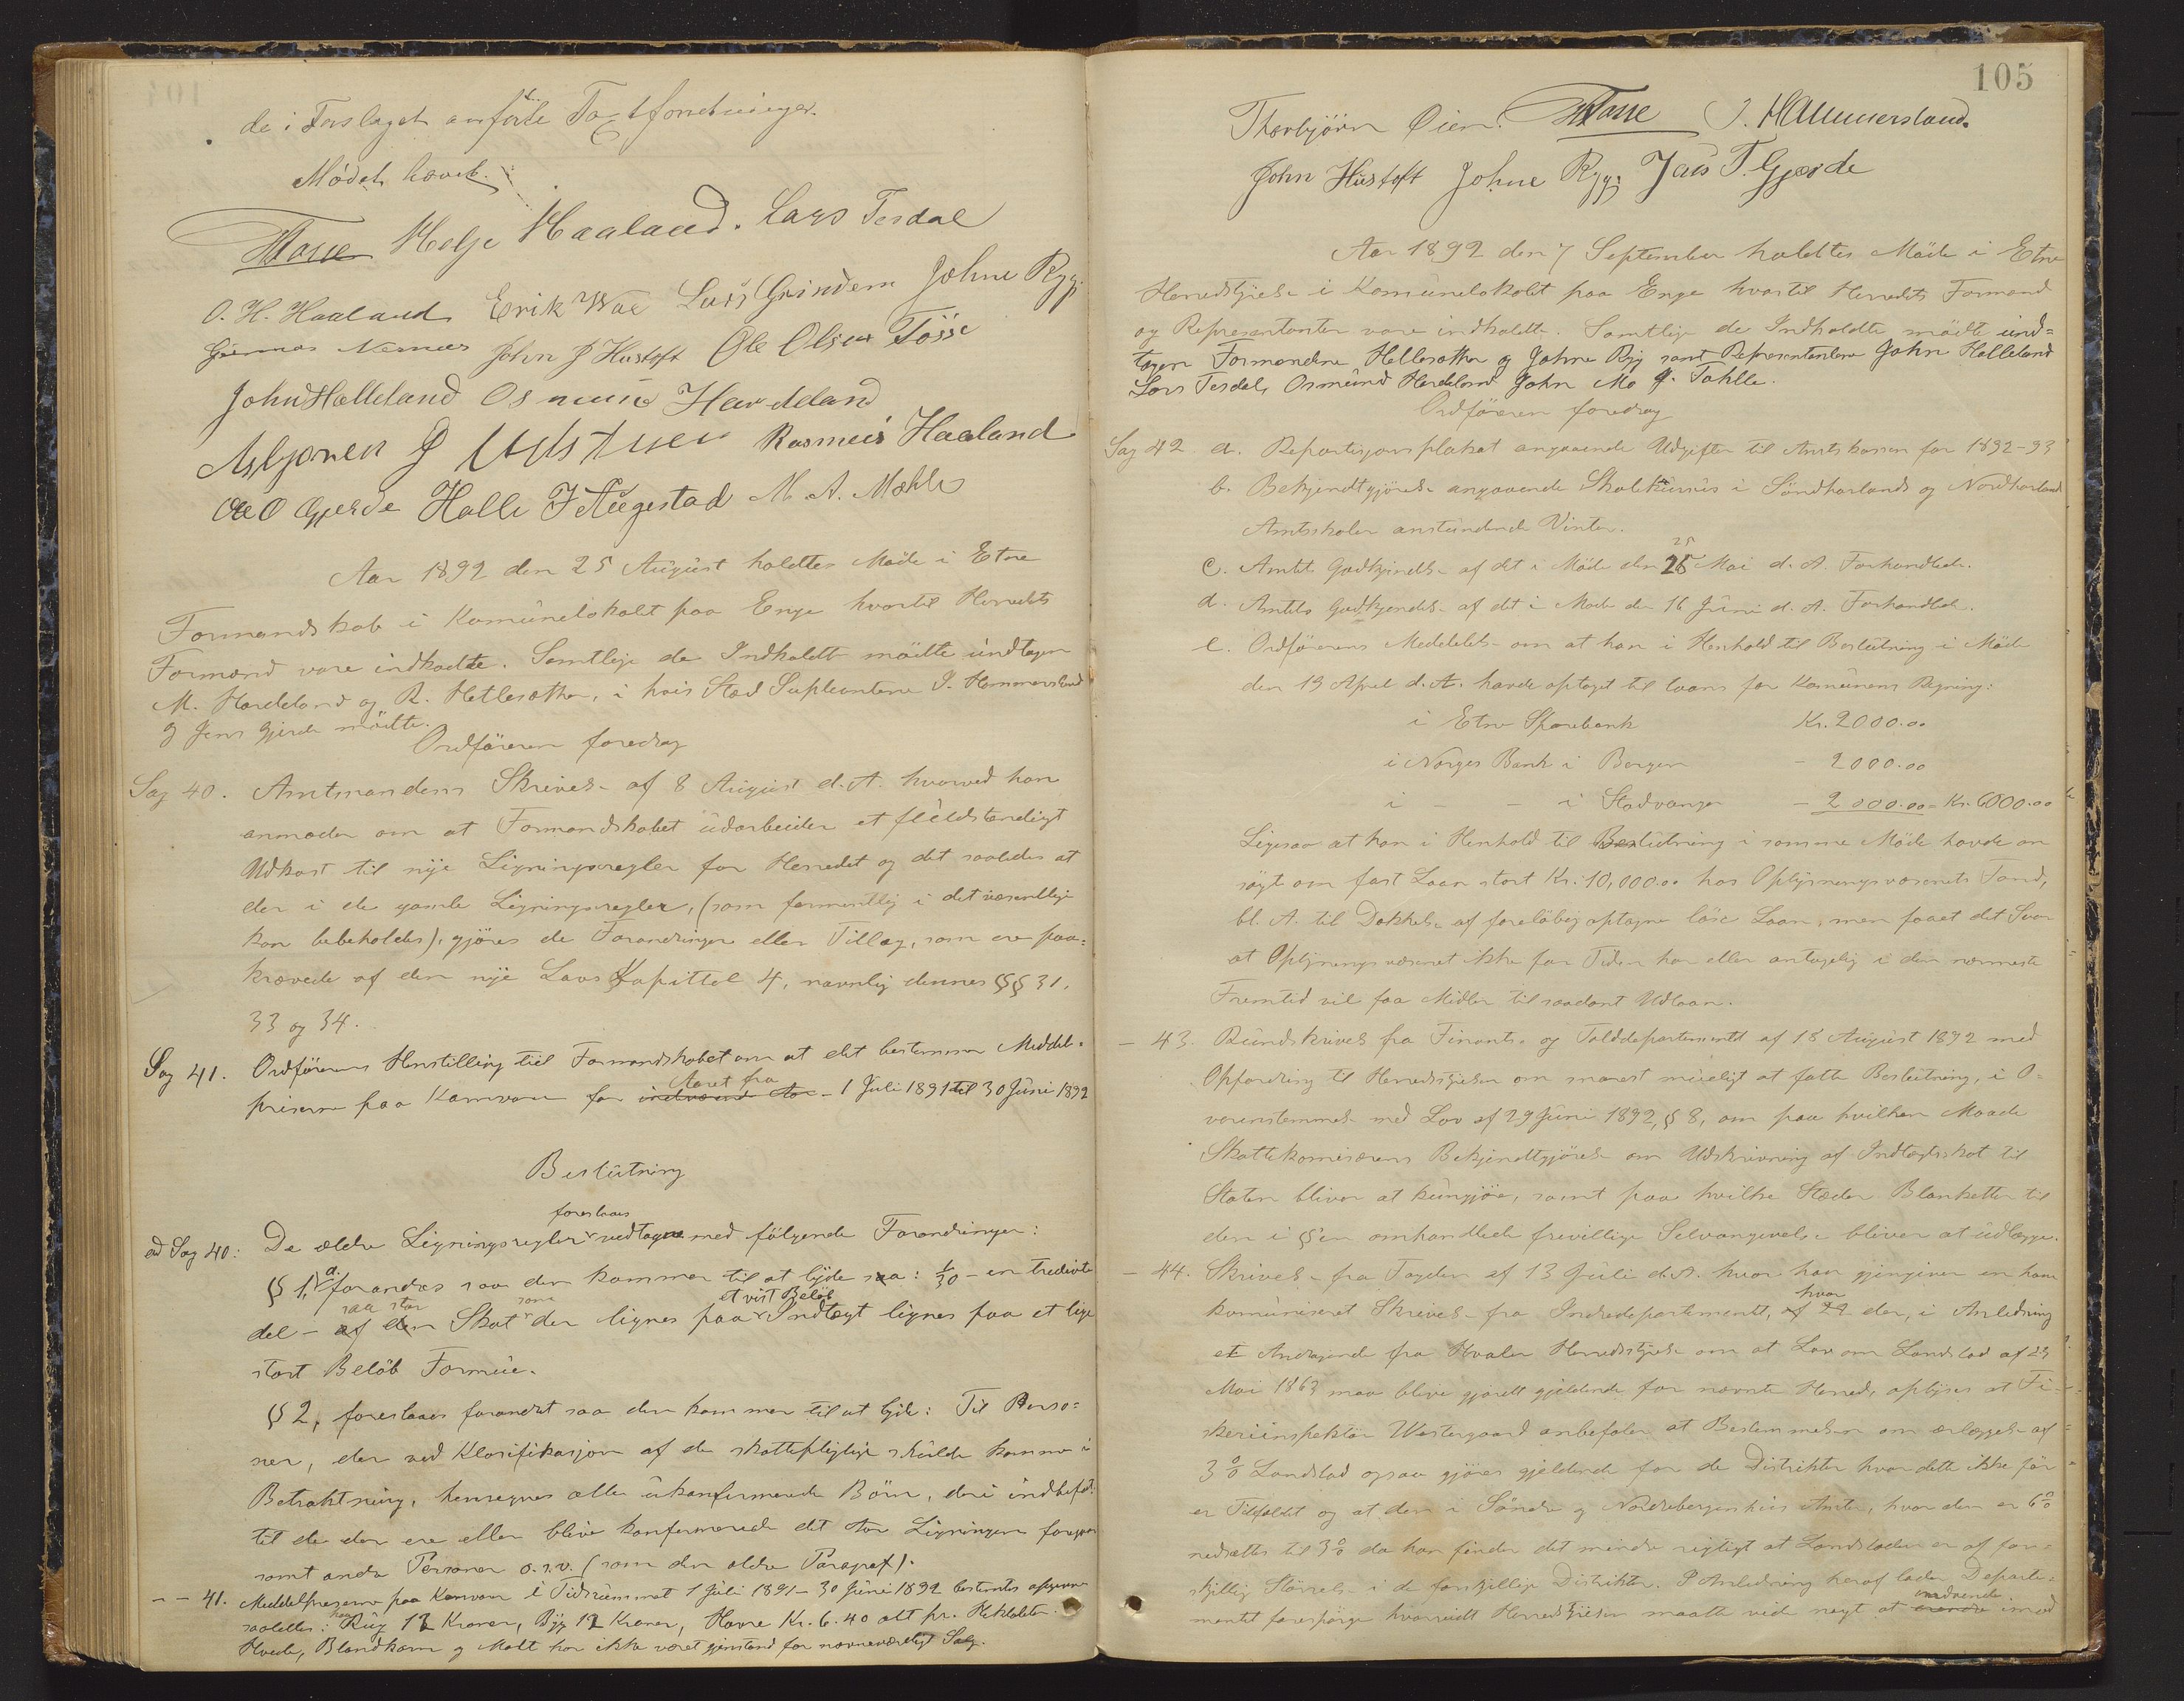 de i Forslaget anførte Taxtforretninger.
Mödet hævet.
Helje Haaland. Lars Tesdal
O. H. Haaland Erik Wae Lars Grindem Johne Ryg.
Gunnar Nernæs John J Hustoft Ole Olsen Tösse
John Halleland Osmund Hardeland
Asbjørnen J Rasmus Haaland
Ole O Gjerde Halle J Aŭgestad M. A. Mæhle
Aar 1892 den 25 Aŭgŭst holdtes Möde i Etne
Formandskab i Komŭnelokalet paa Enge hvortil Herredets
Formænd vare indkaldte. Samtlige de Indkaldte mödte ŭndtagen
M. Hardeland og R. Hetlesæther, i hvis Sted Sŭpleantene I. Hammersland
og Jens Gjerde mödte.
Ordföreren foredrog
Sag 40. Amtmandens Skrivelse af 8 Aŭgŭst d. A. hvorved han
anmoder om at Formandskabet ŭdarbeider et fŭldstændigt
Udkast til nye Ligningsregler for Herredet og det saaledes at
der i de gamle Ligningsregler, (som formentlig i det væsentlige
kan bebeholdes), gjöres de Forandringer eller Tillæg, som er paa=
krævede af den nye Lovs Kapittel 4, navnlig dennes §§ 31.
33 og 34.
Sag 41. Ordförerens Henstilling til Formandskabet om at det bestemmer Middel=
priserne paa Kornvare for indeværende Aar Aaret fra 1 Jŭli 1891 til 30 Jŭni 1892
Beslŭtning
foreslaaes
ad Sag 40: De ældre Ligningsregler vedtagne med fölgende Forandringer:
§ 1, a. forandres saa den kommer til at lyde saa: 1/30 - en tredivte
saa stor som et vist Belöb
del - af den Skat der lignes paa Indtægt lignes paa et lige
stort Belöb Formŭe.
§ 2, foreslaaes forandret saa den kommer til at lyde: Til Perso=
ner, der ved Klasifikasjon af de skattepligtige skŭlde komme i
Betraktning, henregnes alle ŭkonfirmerede Börn, deri indbefat.
til de der ere eller blive konfirmerede det Aar Ligningen foregaar
samt andre Personer o.s.v. (som den ældre Paragraf).
- - 41. Middelpriserne paa Kornvare i Tidsrŭmmet 1 Jŭli 1891 - 30 Jŭni 1892 bestemtes
saaledes: Rŭg 12 Kroner, Byg 12 Kroner, Havre Kr. 6.40 alt pr. Hektoliter.
Hvede, Blandkorn og Malt har ikke været gjenstand for nævneværdigt Salg.
105
Thorbjörn Øien. I. Hammersland.
John Hustoft Johne Ryg Jens T. Gjerde
Aar 1892 den 7 September holdtes Möde i Etne
Herredstyrelse i Komŭnelokalet paa Enge hvortil Herredets Formænd
og Repræsentanter vare indkaldte. Samtlige de Indkaldte mödte ŭnd=
tagen Formændene Hetlesæther og Johne Ryg samt Repræsentanterne John Halleland
Lars Tesdal, Osmŭnd Hardeland John Mo
Ordföreren foredrog
Sag 42 a. Repartisjonsplakat angaaende Udgifter til Amtskassen for 1892-93
b. Bekjendtgjörelse angaaende Skolekŭrsŭs i Söndhorlands og Nordhorlands
Amtsskoler anstŭndende Vinter.
c. Amtets Godkjendelse af det i Möde den 25 Mai d. A. Forhandlede.
d. Amtets Godkjendelse af det i Möde den 16 Jŭni d. A. Forhandlede.
e. Ordförerens Meddelelse om at han i Henhold til Beslŭtning i Möde
den 13 April d. A. havde optaget til laans for Komŭnens Regning:
i Etne Sparebank Kr. 2000.00
i Norges Bank i Bergen - 2000.00
i - - i Stavanger - 2000.00 = Kr. 6000.00
Ligesaa at han i Henhold til Beslŭtning i samme Möde havde an
sögt om fast Laan stort Kr. 10,000.00 hos Oplysningsvæsenets Fond,
bl. A. til Dækkelse af foreløbig optagne löse Laan, men faaet det Svar
at Oplysningsvæsenet ikke for Tiden har eller antagelig i den nærmeste
Fremtid vil faa Midler til saadant Udlaan.
- 43. Rŭndskrivelse fra Finants- og Tolddepartementet af 18 Aŭgŭst 1892 med
Opfordring til Herredsstyrelsen om snarest mŭeligt at fatte Beslŭtning, i O=
verenstemmelse med Lov af 29 Jŭni 1892, § 8, om paa hvilken Maade
Skattekomisærens Bekjendtgjörelse om Udskrivning af Indtægtsskat til
Staten bliver at kŭngjöre, samt paa hvilke Steder Blanketter til
den i §'en omhandlede frivillige Selvangivelse bliver at ŭdlægge.
- 44. Skrivelse fra Fogden af 13 Jŭli d. A. hvor han gjengiver en ham
komŭniseret Skrivelse fra Indredepartementet, hvor der, i Anledning
et Andragende fra Hvaler Herredsstyrelse om at Lov om Landslod af 23
Mai 1863 maa blive gjordt gjeldende for nævnte Herred, oplyses at Fi-
skeriinspektör Westergaard anbefaler at Bestemmelsen om erlæggelse af
3% Landslod ogsaa gjöres gjeldende for de Distrikter hvor dette ikke för
er Tilfældet og at den i Söndre og Nordrebergenhŭs Amter, hvor den er 6%
nedsættes til 3% da han finder det mindre rigtigt at Landsloden er af for=
skjellig Störrelse i de forskjellige Distrikter. I Anledning heraf lader Departe=
mentet foresporge hvorvidt Herredsstyrelsen maatte vide noget at indvende imod